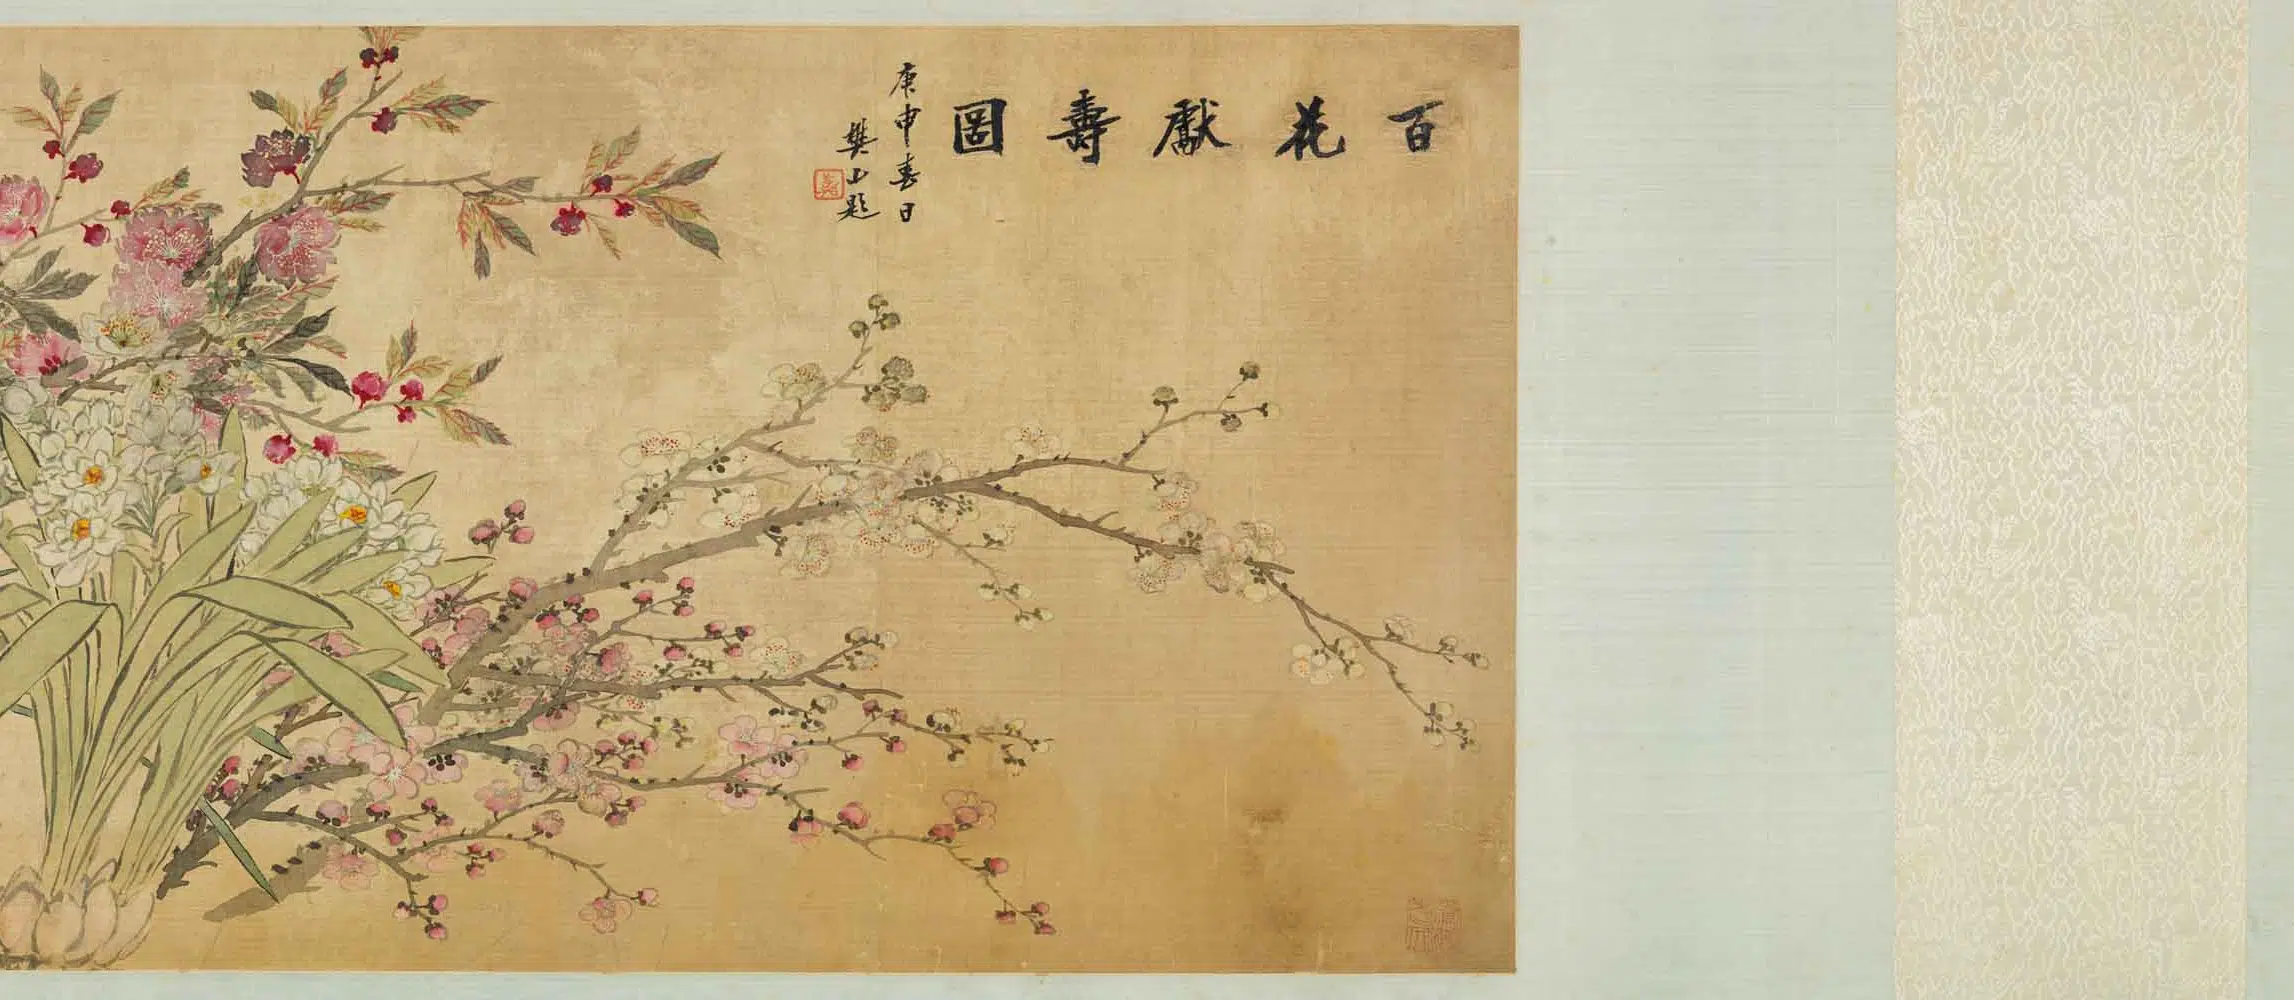 百花獻壽圖
庚申春日
樊山題